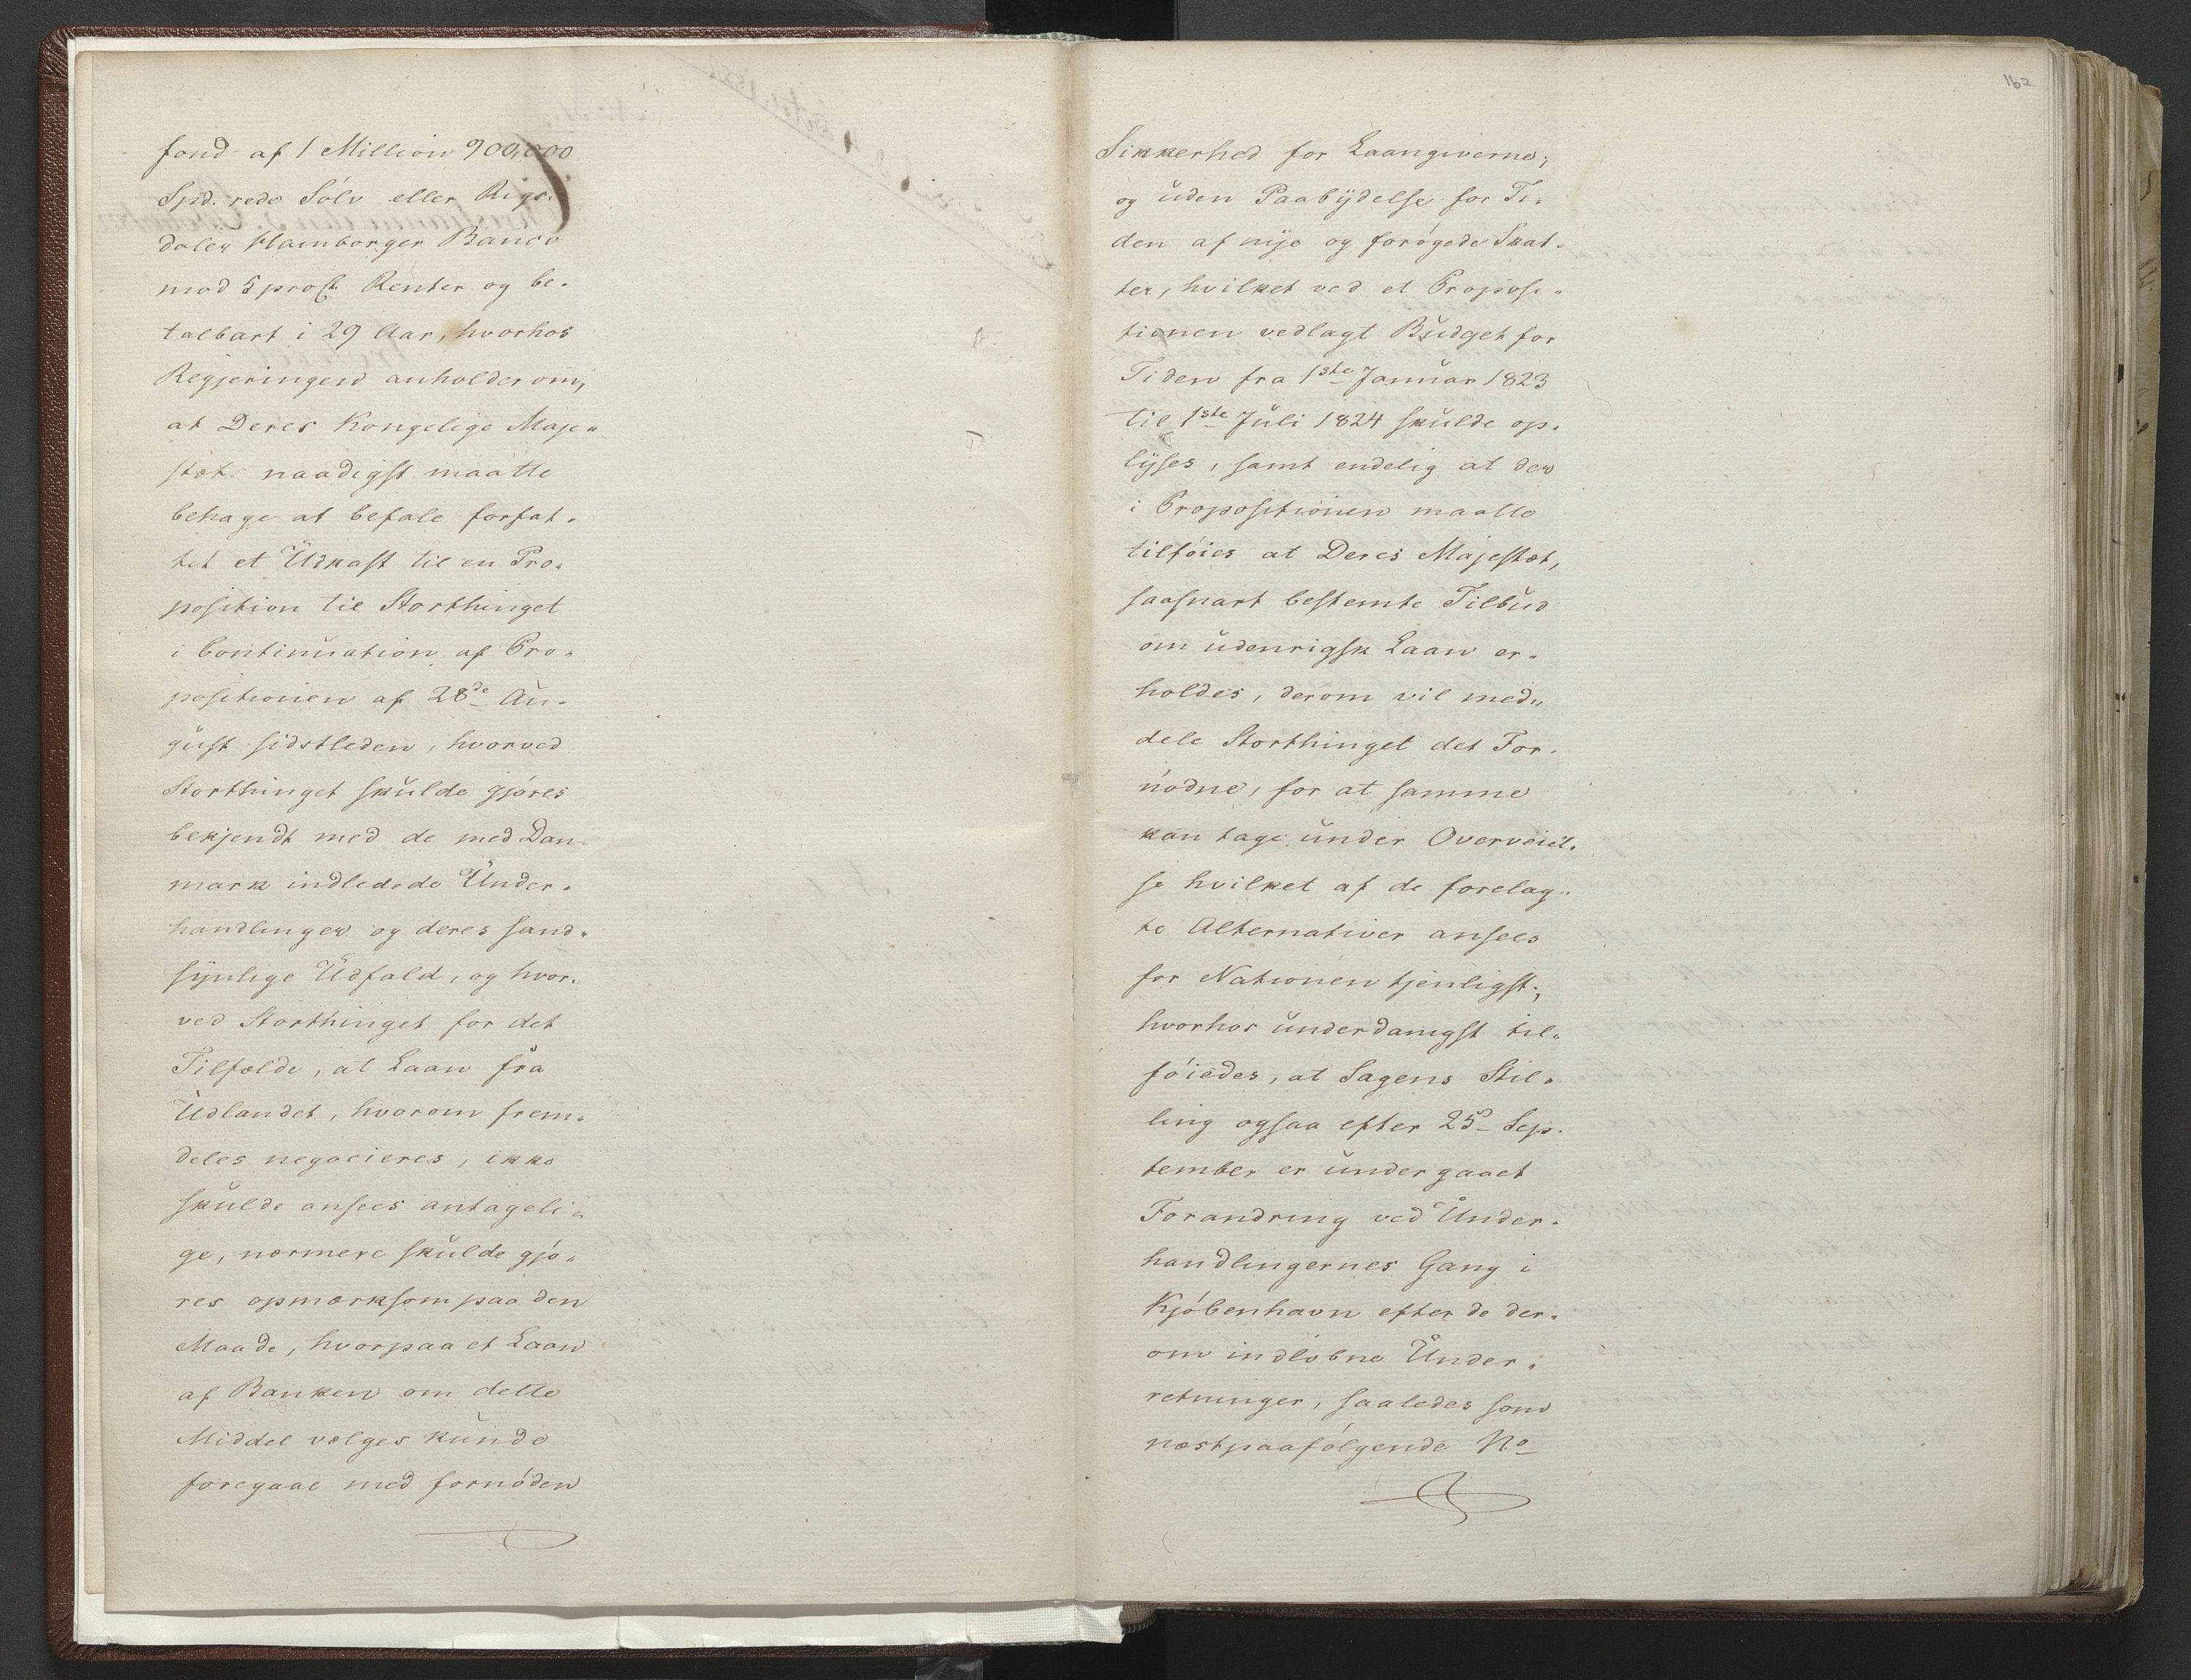 fond af 1 Million 900,000
Spd. rede Sølv eller Rigs-
daler Hamborger Banco
mod 5 proCt. Renter og be-
talbart i 29 Aar, hvorhos
Regjeringen anholder om,
at Deres Kongelige Maje-
stæt naadigst maatte
behage at befale forfat-
tet et Udkast til en Pro-
position til Storthinget
i Continuation af Pro-
positionen af 28de Au-
gust sidstleden, hvorved
Storthinget skulde gjøres
bekjendt med de med Dan-
mark indledede Under-
handlinger og deres sand-
synlige Udfald, og hvor-
ved Storthinget for det
Tilfælde, at Laan fra
Udlandet, hvorom frem-
deles negocieres, ikke
skulde ansees antageli-
ge, nærmere skulde gjø-
res opmærksom paa den
Maade, hvorpaa et Laan
af Banken om dette
Middel vælges kunde
foregaae med fornøden
162
Sikkerhed for Laangiverne;
og uden Paabydelse for Ti-
den af nye og forøgede Skat-
ter, hvilket ved et Proposi-
tionen vedlagt Budget for
Tiden fra 1ste Januar 1823
til 1ste Juli 1824 skulde op-
lyses, samt endelig at der
i Propositionen maatte
tilføies at Deres Majestæt,
saasnart bestemte Tilbud
om udenrigsk Laan er-
holdes, derom vil med-
dele Storthinget det For-
nødne, for at samme
kan tage under Overveiel-
se hvilket af de forelag-
te Alternativer ansees
for Nationen tjenligst;
hvorhos underdanigst til-
føiedes, at Sagens Stil-
ling ogsaa efter 25d Sep-
tember er undergaaet
Forandring ved Under-
handlingernes Gang i
Kjøbenhavn efter de der-
om indløbne Under-
retninger, saaledes som
næstpaafølgende No